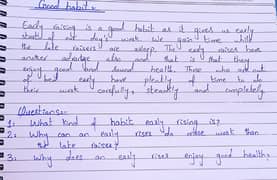 Good habit:-
Early rising is a good habit as it gives us early
start of our day's work. We gain time while
the late raisers are asleep. The early raisers have
another advantage also and that is they
enjoy good and sound health. Those who are out
of bed early have pleantly of time to do
their work carefully, steadily and completely.
Questions:-
1: What kind of habit early rising is?
2: Why can an early rises do more work than
the late raiser?
3: Why does an early riser enjoy good health?